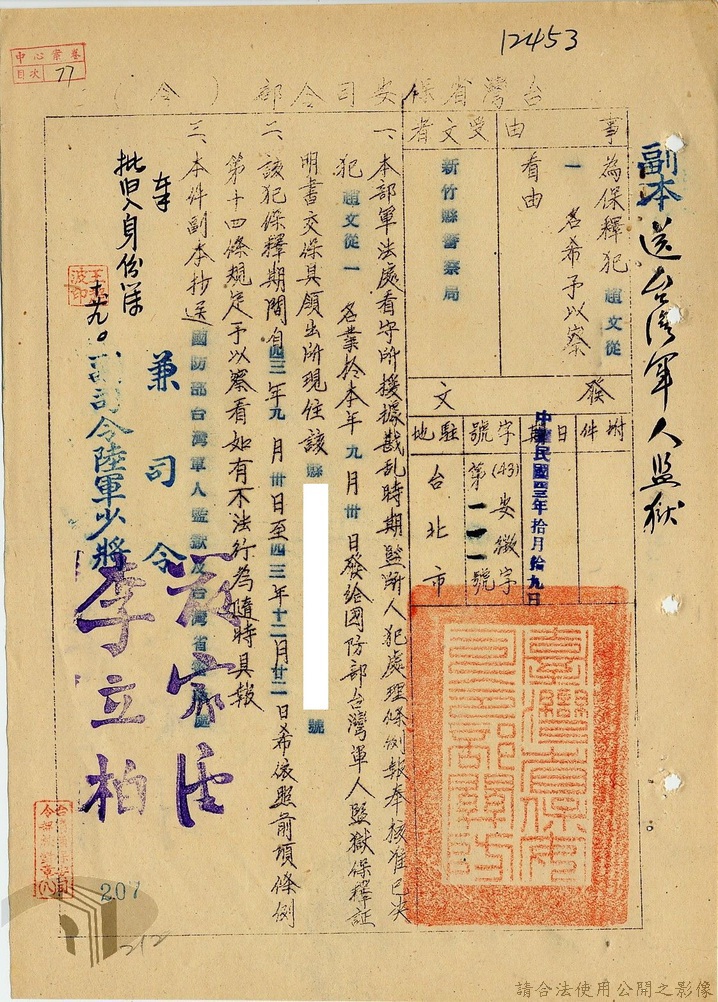 12453
中心案卷
目次 77
台灣省保安司令部(令)
副本送台湾軍人監獄
事由
為保釋犯趙文從
一名希予以察
看由
受文者
新竹縣警察局
發文
附件
日期
中華民國四三年拾月拾九日
字號
(43)安徽字
第一一一號
駐地
台北市
一、本部軍法處看守所援據戡乱時期監所人犯處理條例報奉核准已决
犯趙文從一名業於本年九月卅日發給國防部台灣軍人監獄保釋証
明書交保具領出所現住該縣
號
二、該犯保釋期間自四三年九月卅日至四三年十二月廿二日希依照前項條例
第十四條規定予以察看如有不法行為隨時具報
三、本件副本抄送國防部台灣軍人監獄及台灣省
兼司令
副司令陸軍少將
李立柏
台灣省保安司令部關防
207
212
請合法使用公開之影像